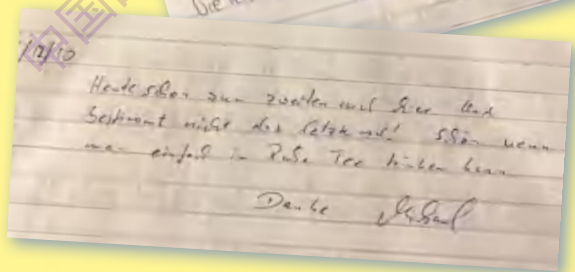 Die
中国
1/10/10
Heute schon zum zweiten mal hier und
bestimmt nicht das letzte mal! Schön wenn
man einfach in Ruhe Tee trinken kann
Danke